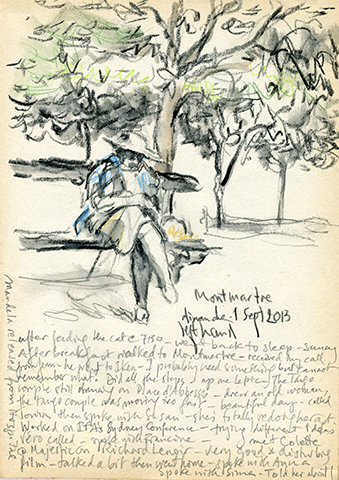 Montmartre
dimanche 1 Sept 2013
left hand
after feeding the cat @ 7:30 - went back to sleep - sunny
After breakfast walked to Montmartre - received my call
from - he went to - I probably need something but cannot
remember what. Did all the steps up me kept - The Tango
couple still dancing on Place d'Abesses - drew an old woman
the tango couple was moving too fast - beautiful day - called
- then spoke with Elsan - she's totally redone her art
Worked on Sydney Conference - trying different ideas
Vero called - spoke with Francine - met Colette
@ Majestic on Richard Lenoir - very good & disturbing
film - talked a bit then went home - spoke with Anna
spoke with Sima - Told her about
Mandela released from Hospital